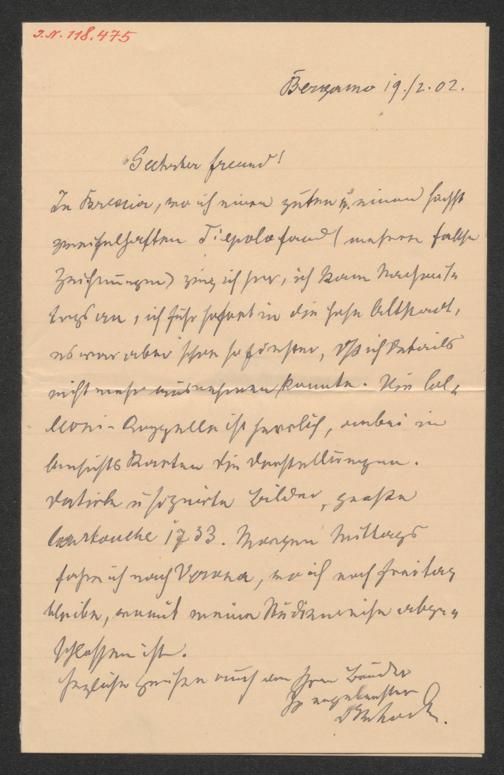 J.N. 118.475
Bergamo 19./2. 02.
Geehrter Freund!
In Brescia, wo ich einen guten u. einen höchst
zweifelhaften Tiepolo fand (mehrere falsche
Zeichnungen) ging ich her, ich kam Nachmit-
tags an, ich fuhr sofort in die hohe Altstadt,
es war aber schon so finster, daß ich Details
nicht mehr ausnehmen konnte. Die Col-
leoni-Cappella ist herrlich, anbei in
Ansichtskarten die Darstellungen.
Datirte u signirte Bilder, große
Cartouche 1733. Morgen Mittags
fahre ich nach Verona, wo ich noch Freitag
bleibe, womit meine Studienreise abge-
schlossen ist.
Herzliche Grüße auch an Ihren Bruder
Ihr ergebenster